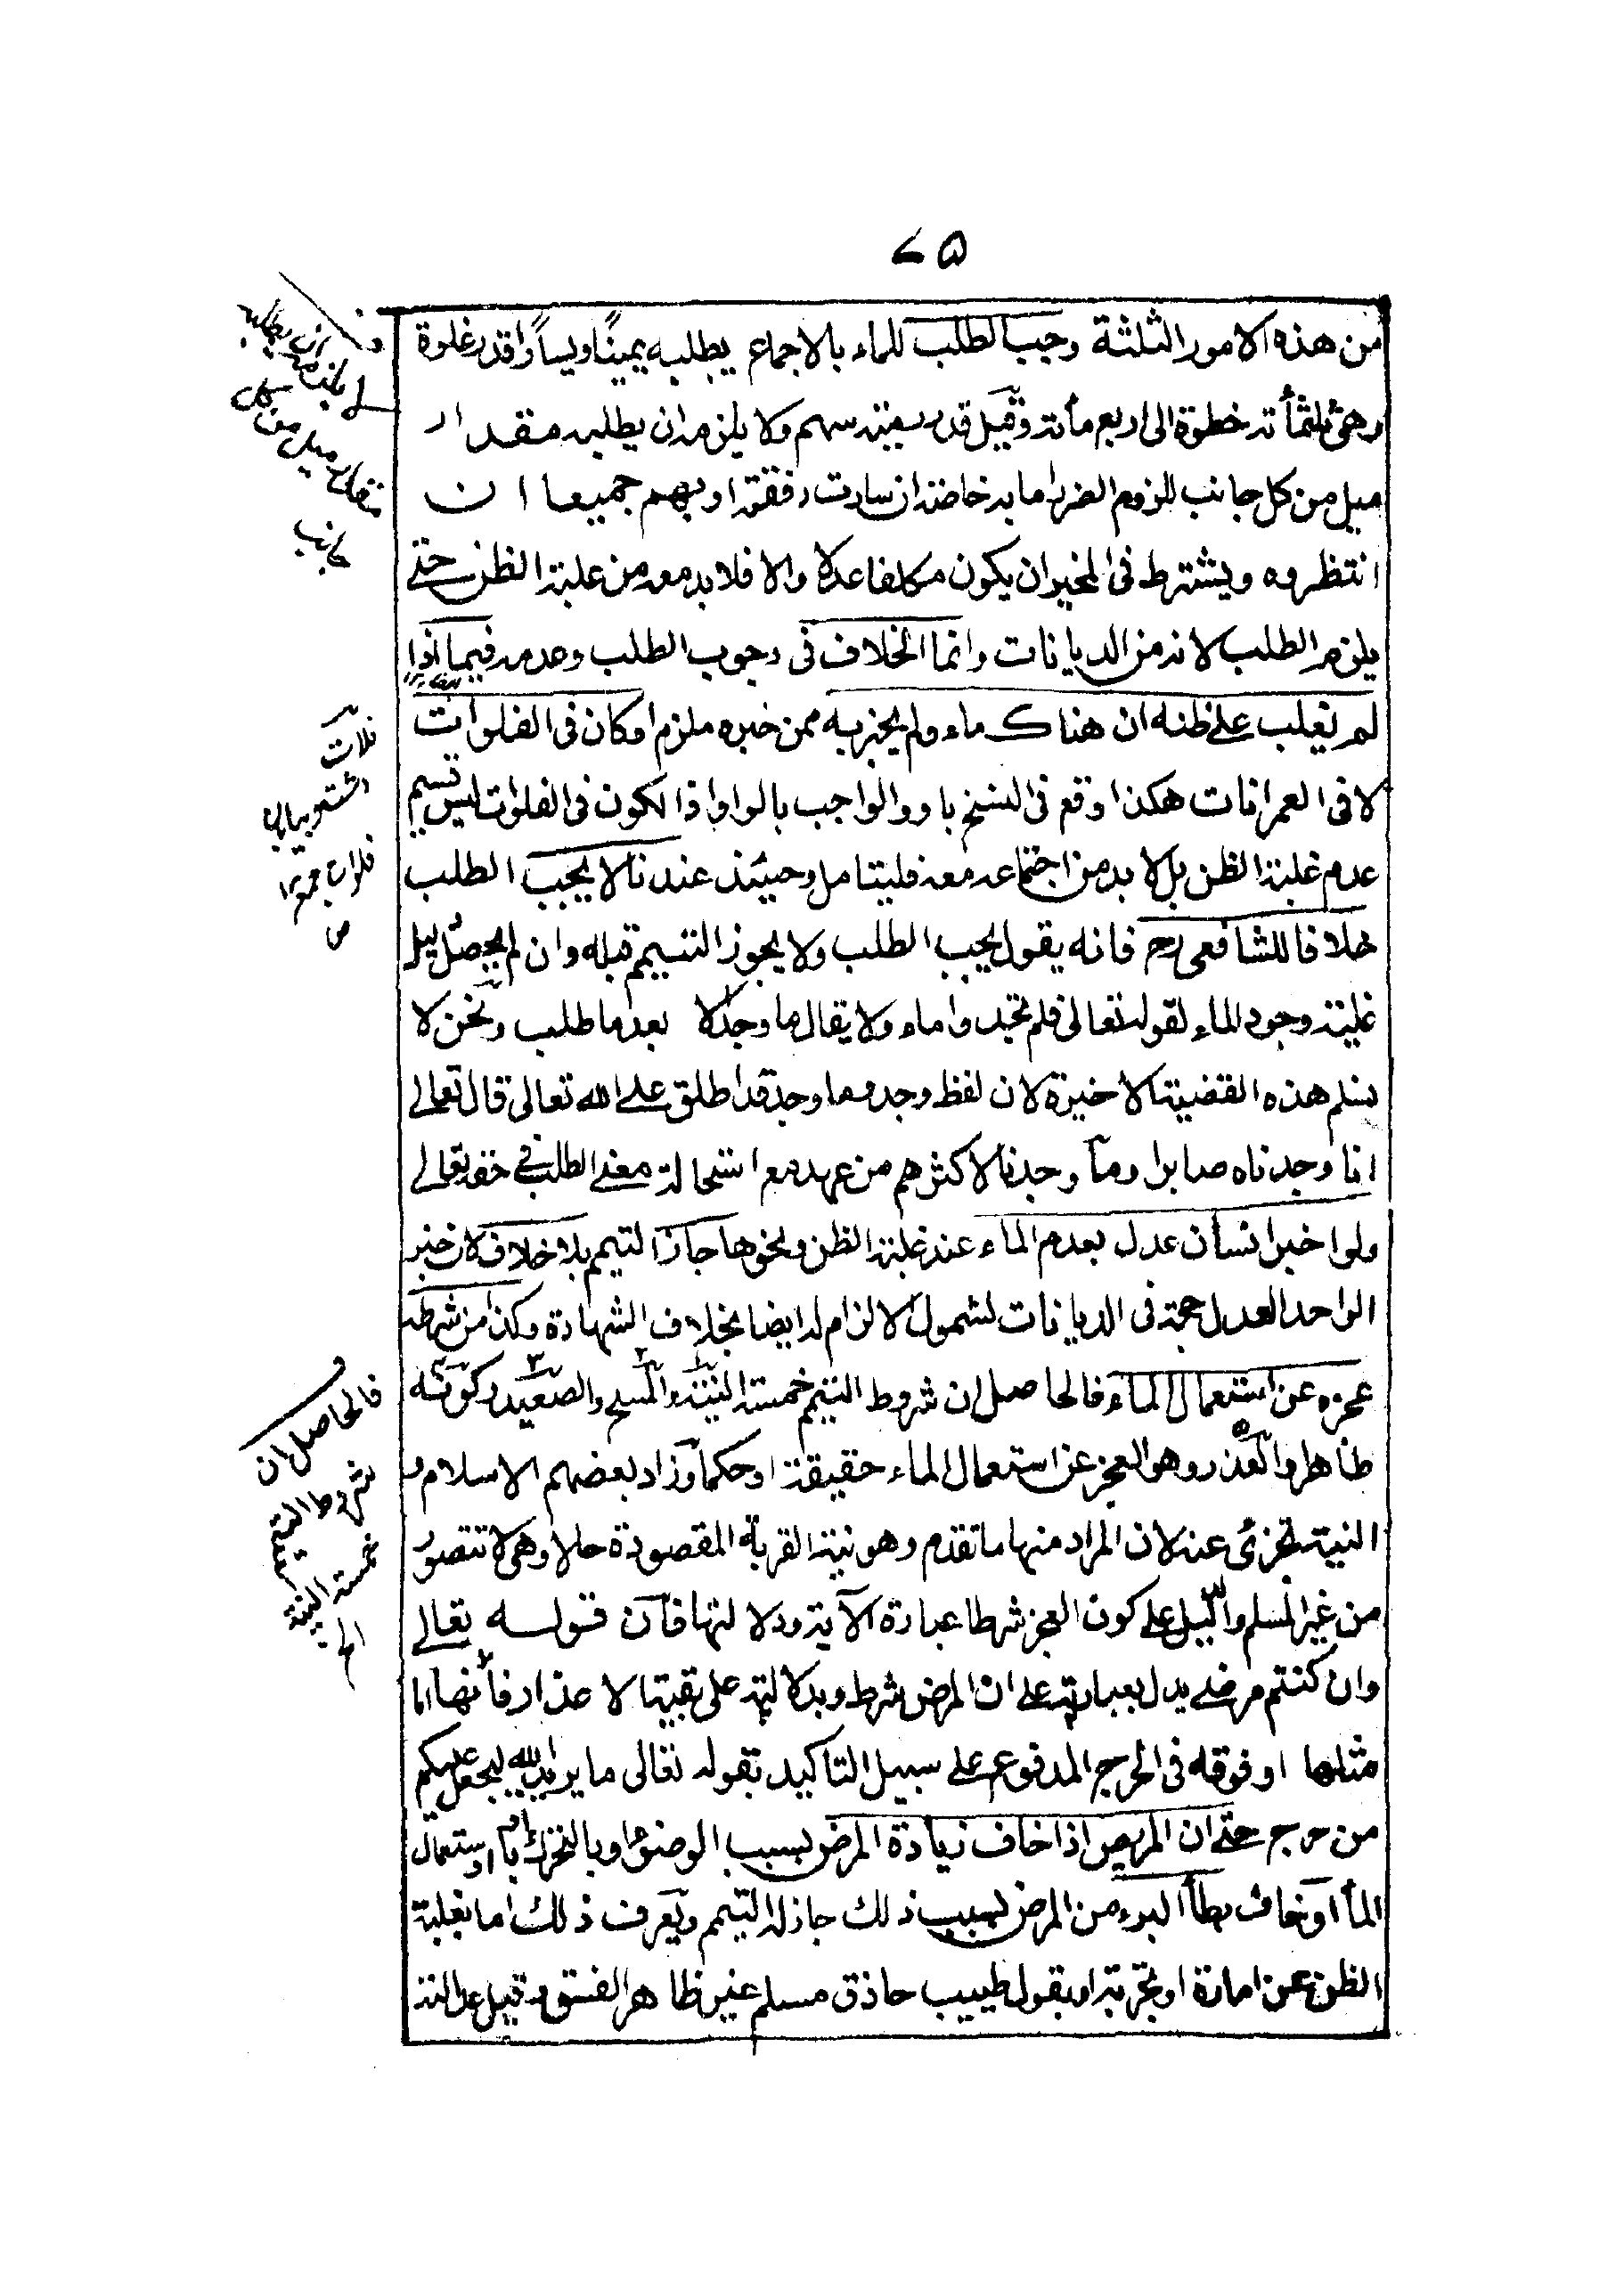 ٧٥
من هذه الامور الثلثة وجب الطلب للماء بالاجماع يطلبه يمينًا ويسارًا قدر غلوة
وهى ثلثمأته خطوة الى اربع مأته وقيل قدر رميته سهم ولا يلزمه ان يطلبه مقدار
ميل من كل جانب للزوم الضرر اما به خاصته ان سارت رفقته او بهم جميعا ان
انتظروه ويشترط فى المخبر ان يكون مكلفا عدلا والا فلا بد معه من غلبته الظن حتى
يلزم الطلب لانه من الديانات وانما الخلاف فى وجوب الطلب وعدمه فيما اذا
لم تغلب على ظنه ان هناك ماء ولم يخبر به ممن خبره ملزم او كان فى الفلوات
لا فى العمرانات هكذا وقع فى النسخ باو والواجب بالواو اذ الكون فى الفلوات ليس قسيم
عدم غلبته الظن بل لا بد من اجتماعه معه فليتامل وحينئذ عندنا لا يجب الطلب
خلافا للشافعى رح فانه يقول يجب الطلب ولا يجوز التيمم قبله وان لم يحصل له
غلبته وجود الماء لقوله تعالى فلم تجدوا ماء ولا يقال ما وجد الا بعد ما طلب ونحن لا
نسلم هذه القضيته الاخيرة لان لفظ وجد وما وجد قد اطلق على الله تعالى قال تعالى
انا وجدناه صابرا وما وجدنا لاكثرهم من عهد مع استحالة معنى الطلب فى حقه تعالى
ولو اخبر انسان عدل بعدم الماء عند غلبته الظن ونحوها جاز التيمم بلا خلاف لان خبر
الواحد العدل حجة فى الديانات لشمول الالزام له ايضا بخلاف الشهادة وكذا من شرطه
عجزه عن استعمال الماء فالحاصل ان شروط التيمم خمسته النيته والمسح والصعيد وكونه
طاهرا والعذر وهو العجز عن استعمال الماء حقيقته او حكما وزاد بعضهم الاسلام و
النيته تجزئ عنه لان المراد منها ما تقدم وهو نيته القربة المقصودة حالا وهى لا تتصور
من غير المسلم والدليل على كون العجز شرطا عبارة الآيته ودلالتها فان قوله تعالى
وان كنتم مرضى يدل بعبارته على ان المرض شرط وبدلالته على بقيته الاعذار فانها اما
مثلها او فوقه فى الحرج المدفوع على سبيل التاكيد بقوله تعالى ما يريد الله ليجعل عليكم
من حرج حتى ان المريض اذا خاف زيادة المرض بسبب الوضوء او بالتحرك او باستعمال
الماء او خاف بطأ البرء من المرض بسبب ذلك جاز له التيمم ويعرف ذلك اما بغلبة
الظن عن امارة او تجربته او بقول طبيب حاذق مسلم غير ظاهر الفسق وقيل عدالته
ان يطلبه
مقدار ميل من كل
جانب
فلات
فلوات جمع
ص
فالحاصل ان
شروط التيمم
خمسته النيته
الخ